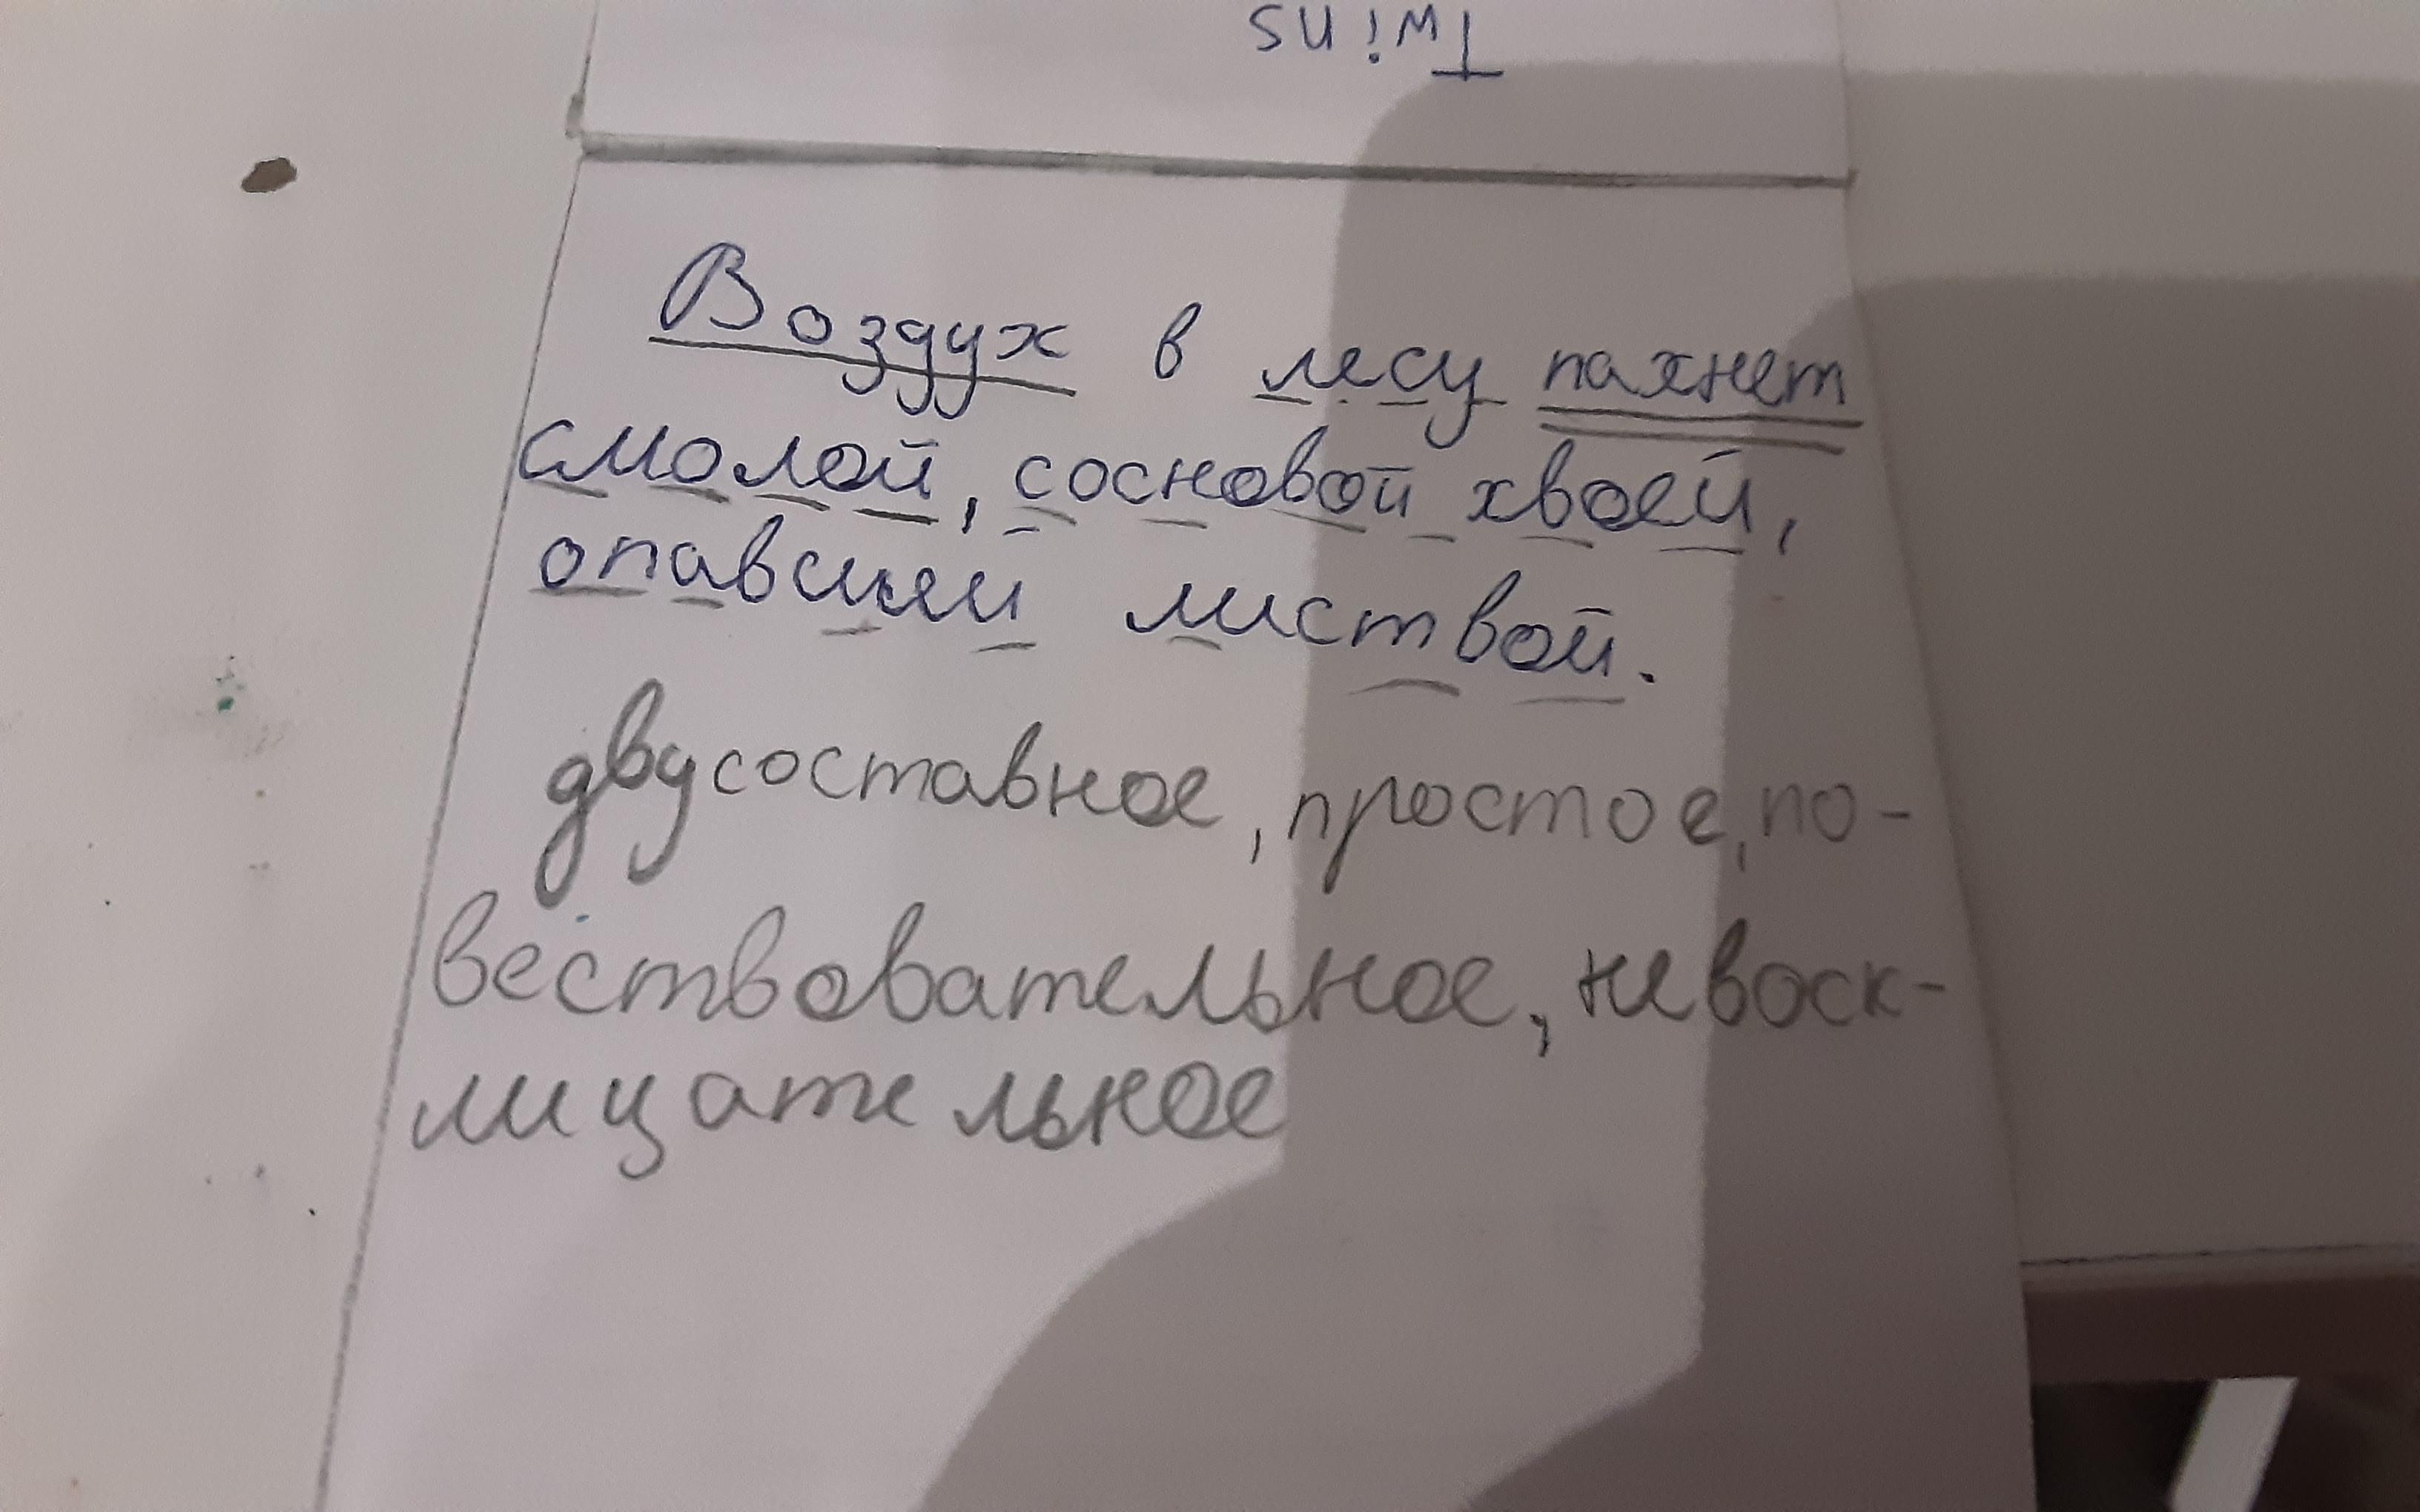 Twins
Воздух в лесу пахнет
смолой, сосновой хвоей,
опавшей листвой.
двусоставное, простое, по-
вествовательное, невоск-
лицательное